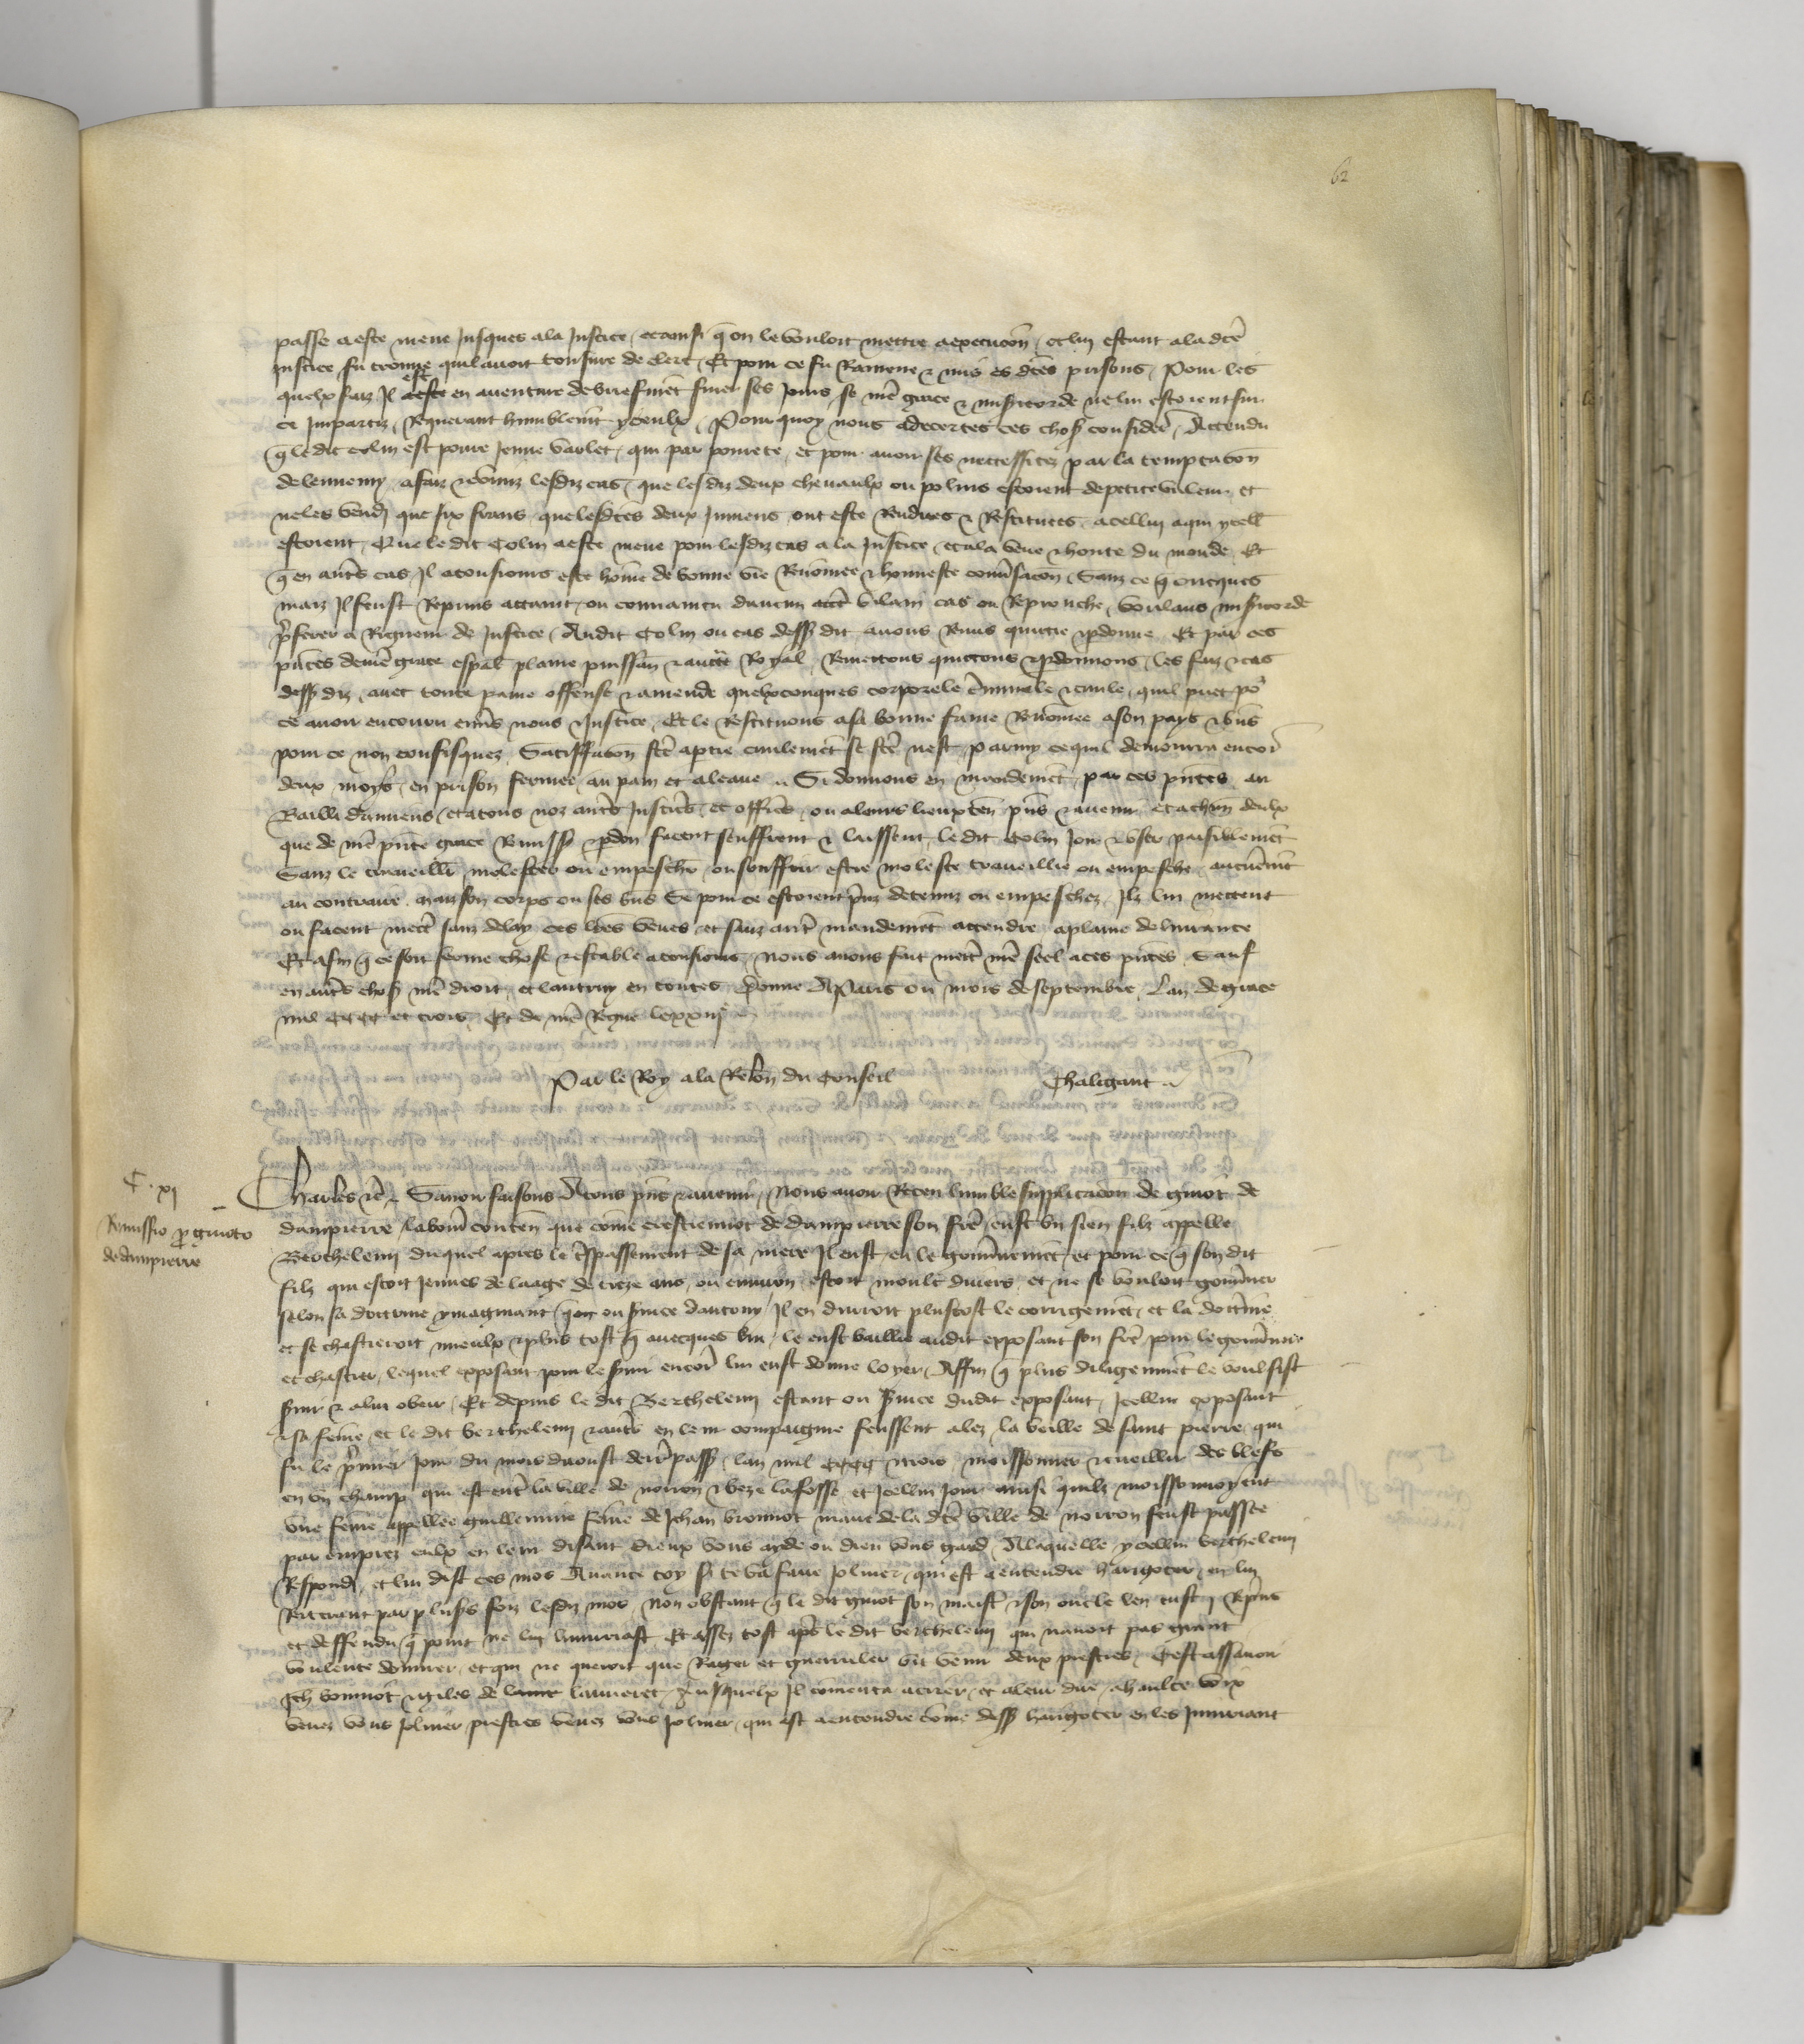 62
passe a este mene Jusques ala Justice et ainsi q̄ on le vouloit mettre a execucōn et luy estant ala dcē
Justice fu trouue quil auoit tonsure de clerc Et pour ce fu Ramene & mis es dcēs prisons Pour les
quelx faiz Il est en auenture de briefmēt finer ses Jours se nrē grace & misericorde ne luy estoient sur
ce Imparties Requerant humblemt yceulx Pour quoy nous adecertes ces choses considerees Attendu
q̄ le dit Colin est poure Jeune varlet qui par pourete et pour auoir ses necessitez par la temptacōn
de lennemy a faiz & commis lesdiz cas que lesdiz deux cheuaulx ou polins estoient de petite valeur et
ne les vendy que six frans que lesdcēs deux Jumens ont este Rendues & Restituees a celluy a qui ycell
estoient Que le dit Colin a este mene pour lesdiz cas a la Justice et a la veue & honte du monde Et
q̄ en autrēs cas Il a tousiours este home de bonne vie Renomee & honneste conuersacōn Sanz ce q̄ oncques
maiz Il feust Reprins attaint ou conuaincu daucun vilain cas ou Reprouche voulans misericorde
preferer a Rigueur de Justice Audit Colin ou cas dessus dit auons Remis quictie & pardonne Et par ces
pntes de nrē grace espal plaine puissan & aucte Royal Remettons quictons & pardonnons les faiz & cas
dessus diz auec toute paine offense & amende quelxconques corporele criminele & ciuile quil puet pour
ce auoir encouru enuers nous & Justice Et le Restituons a sa bonne fame Renomee a son pays & biens
pour ce non confisquez Satisffacōn fcē a partie ciuilemēt se fcē nest parmy ce quil demourra encor
deux moys en prison fermee au pain et a leaue Si donnons en mandemēt par ces pntes au
Bailli damiens et a tous noz autrēs Justices et officies ou a leurs lieuxten pns & auenir et a chūn deulx
que de nrē pnte grace Remission & pardon facent seuffrent & laissent le dit Colin Joir & vser paisiblemēt
Sanz le traueillier molester ou empeschier ou souffrir estre moleste traueillie ou empeschie aucunemēt
au contraire maiz son corps ou ses biens se pour ce estoient prins detenuz ou empeschez Ilz luy mettent
ou facent mectre sanz delay ces lrēs veues et sanz autre mandemēt attendre a plaine deliurance
Et afin q̄ ce soit ferme chose & estable a tousiours Nous auons fait mettre nrē seel a ces pntes Sauf
en autrēs choses nrē droit et lautruy en toutes Donne A Paris ou mois de septembre Lan de grace
mil CCCC et trois Et de nrē Regne le xxiiij
Par le Roy a la Relacōn du Conseil Chaligaut
C. xj
Remissio pro guioto
de dampierre
Charles &c Sauoir faisons A tous pns & auenir Nous auoir Receu lumble supplicacōn de guiot de
dampierre laboureur contenant que cōme crestiennot de dampierre son frere eust vn sien filz appelle
Berthelemy duquel apres le trespassement de sa mere Il eust eu le gouuernemēt et pour ce q̄ son dit
filz qui estoit Jeunes de laage de treze ans ou enuiron estoit moult diuers et ne se vouloit gouuerner
selon sa doctrine ymaginant q̄ ou seruice dautruy Il en duiroit plustost le corrigement et la doctrine
et se chastieroit mieulx & plus tost q̄ auecques luy le eust baillie audit exposant son frere pour le gouuerner
et chastier lequel exposant pour le seruir encor luy eust donne loyer Affin q̄ plus diligemmēt le voulsist
seruir & a luy obeir Et depuis le dit Berthelemy estant ou seruice dudit exposant Icelluy exposant
& sa feme et le dit berthelemy & autres en leur compaignie feussent alez la veille de saint pierre qui
fu le premier Jour du mois daoust derrē passe lan mil CCCC & trois moissonner & cueillir des blefs
en vn champ qui est entre la ville de noiron & beze la fosse et Icelluy Jour ainsi quilz moissonnoyent
vne feme appellee guillemine feme de Jehan bronnot maire de la dcē ville de noiron feust passee
par emprez eulx en leur disant dieux vous ayde ou dieu vous gard A laquelle ycelluy berthelemy
Respondi et luy dist ces mos Auance toy si te va faire Joliner qui est a entendre harigoter en luy
Reiterant par plusrs foiz lesdiz mos Non obstant q̄ le dit guiot son maistre & son oncle len eust Reprins
et deffendu q̄ point ne luy Iniuriast Et assez tost apres le dit berthelemy qui nauoit pas grant
voulente douurer et qui ne queroit que Rager et guerruler vit venir deux prestres Cest assauoir
Jeh bonnot & giles de lauieret Ausquelx Il comenca a crier et a leur dire a haulte voix
venez vous Joliner prestres venez vous Joliner qui est a entendre cōme dessus harigoter en les Iniuriant